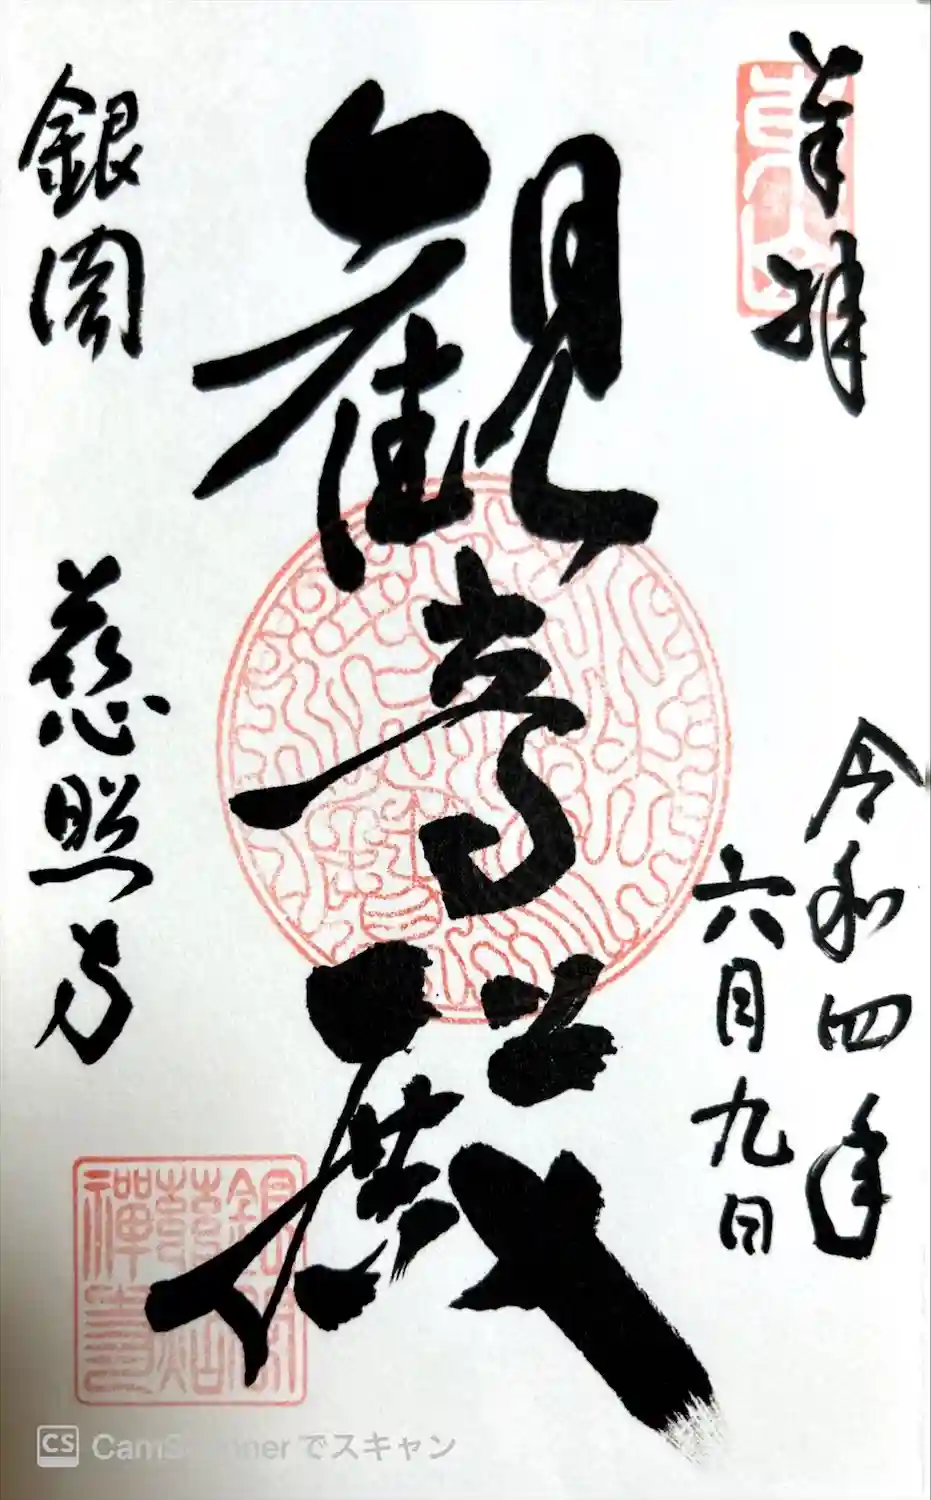 奉拝
東山
令和四年
六月九日
観音殿
銀閣
慈照寺
銀閣
慈照
禅寺
CamScanner でスキャン